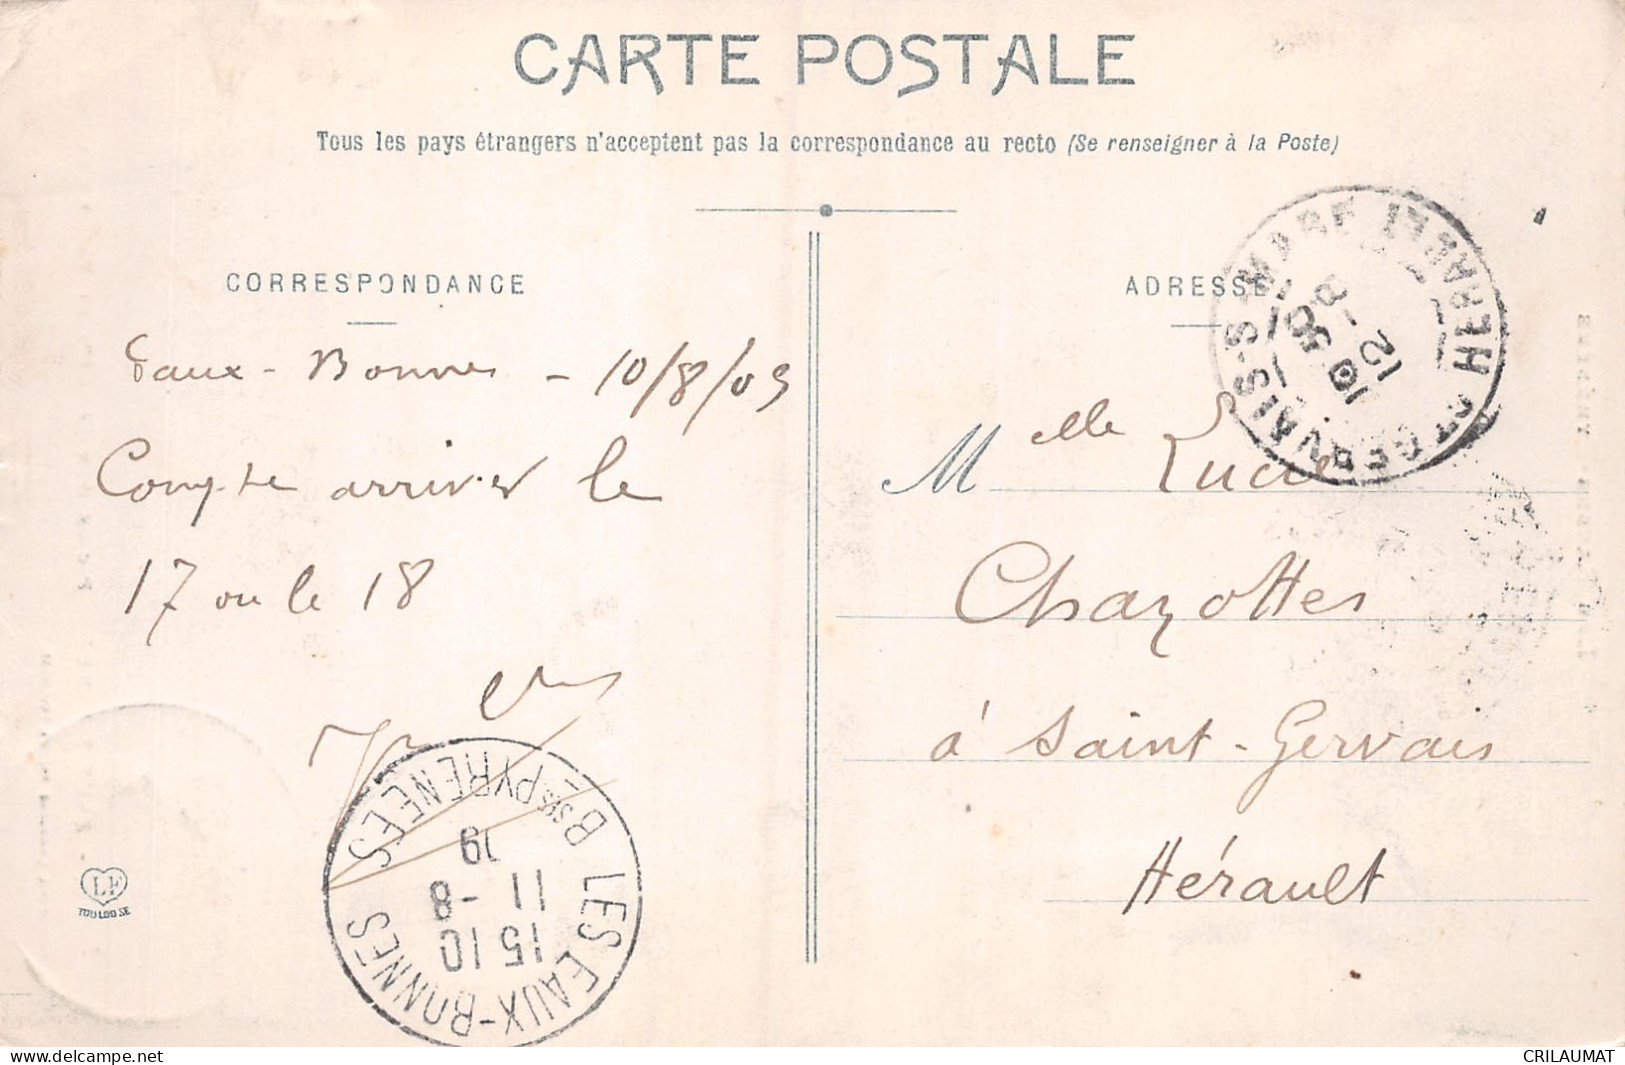 CARTE POSTALE
Tous les pays étrangers n'acceptent pas la correspondance au recto (Se renseigner à la Poste)
CORRESPONDANCE
Eaux-Bonnes - 10/8/09
Compte arriver le
17 ou le 18
ADRESSE
Melle Lucie
Chazottes
à Saint-Gervais
Hérault
ST GERVAIS-S-MARE HERAULT
12 -8
LES EAUX-BONNES
Bses PYRENEES
15 10
11 -8
09
LF
TOULOUSE
https://www.delcampe.net
CRILAUMAT